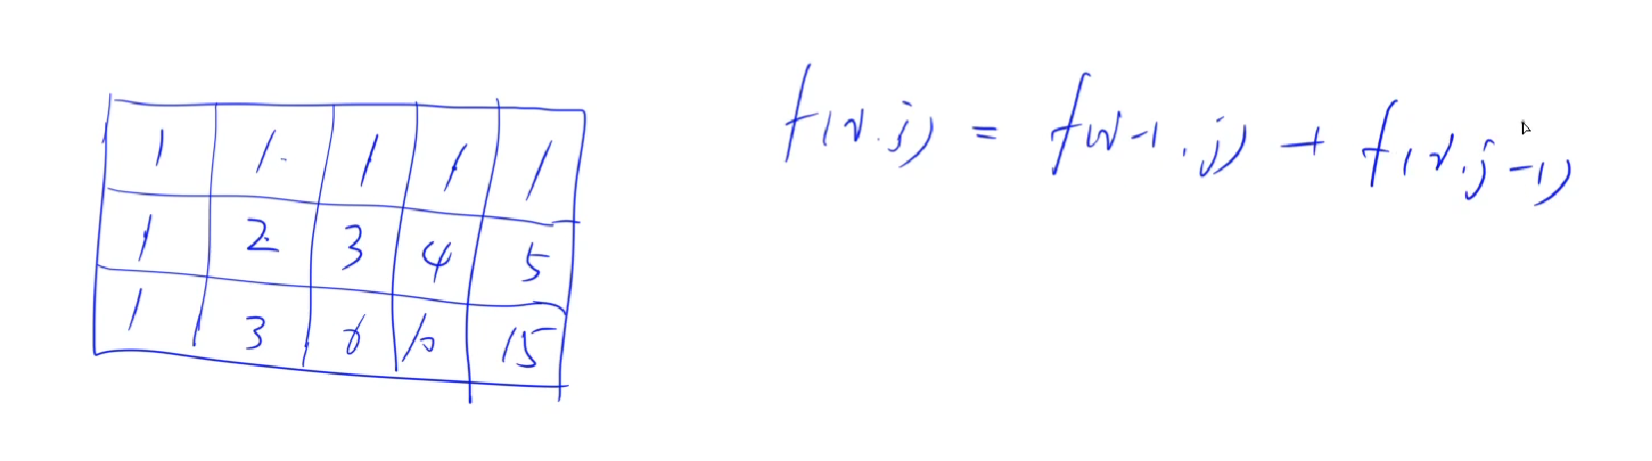 1 1 1 1 1
1 2 3 4 5
1 3 6 10 15
f(i,j) = f(i-1,j) + f(i,j-1)